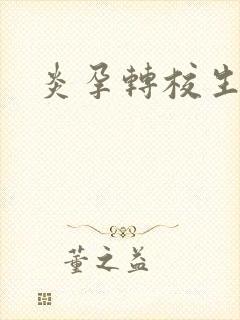 炎孕轉校生
董之益